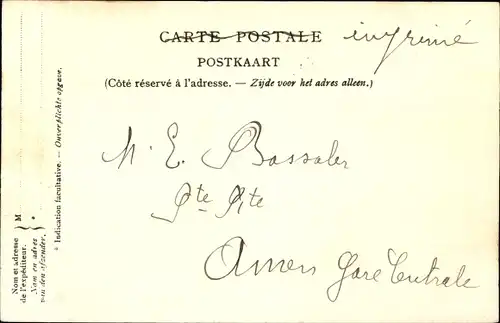 CARTE POSTALE imprimé
POSTKAART
(Côté réservé à l'adresse. — Zijde voor het adres alleen.)
M. E.
Pte Rte
Anvers Gare Centrale
* Indication facultative. — Onverplichte opgave.
Nom et adresse
de l'expéditeur.
Nom en adres
van den afzender.
} M
} *